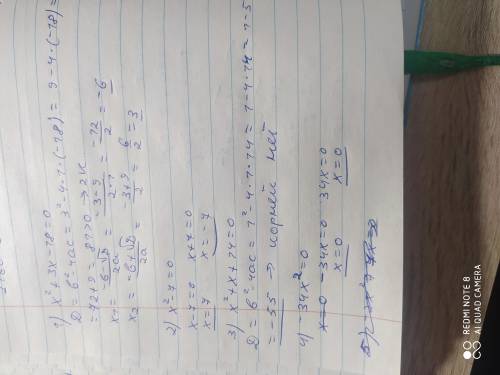 1) x²+3x-18=0
D = b²-4ac = 3²-4·1·(-18) = 9-4·(-18) =
= 72+9 = 81>0 → 2к
x₁ = -b-√D / 2a = -3-9 / 2·1 = -12 / 2 = -6
x₂ = -b+√D / 2a = -3+9 / 2 = 6 / 2 = 3
2) x²-7=0
x-7=0 x+7=0
x=7 x=-7
3) x²+x+14=0
D = b²-4ac = 1²-4·1·14 = 1-4·14 = 1-5
= -55 → корней нет
4) -34x²=0
x=0 -34x=0 34x=0
x=0 x=0
REDMI NOTE 8
AI QUAD CAMERA